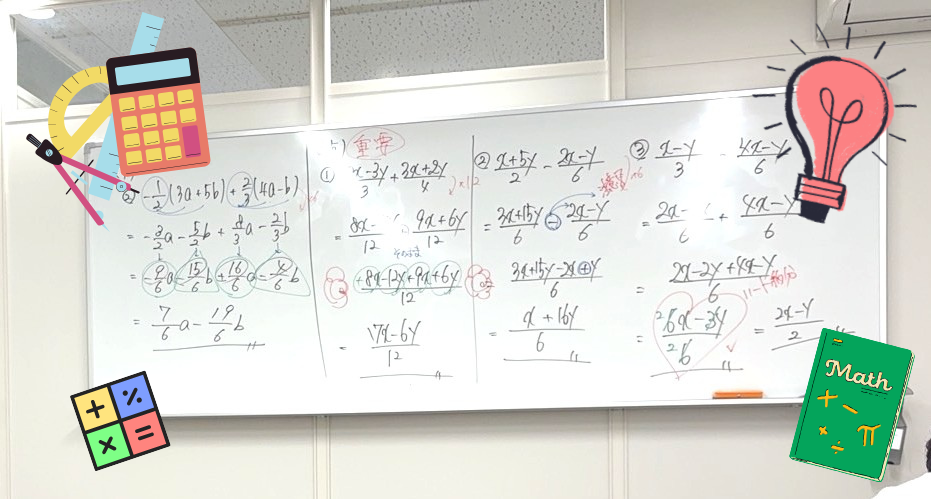 ② -1/2(3a+5b)+2/3(4a-b)
= -3/2a-5/2b+8/3a-2/3b
= -9/6a-15/6b+16/6a-4/6b
= 7/6a-19/6b
重要
① x-3y/3+3x+2y/4
×12
= 8x- /12 9x+6y/12
= +8x-12y+9x+6y/12
= 17x-6y/12
② x+5y/2-2x-y/6
×6
= 3x+15y/6-2x-y/6
3x+15y-2x+y/6
= x+16y/6
③ x-y/3 4x-y/6
= 2x- /6+4x-y/6
= 2x-2y+4x-y/6
= 6x-3y/6 = 2x-y/2
Math
+ -
+ ÷ π
+ %
× =